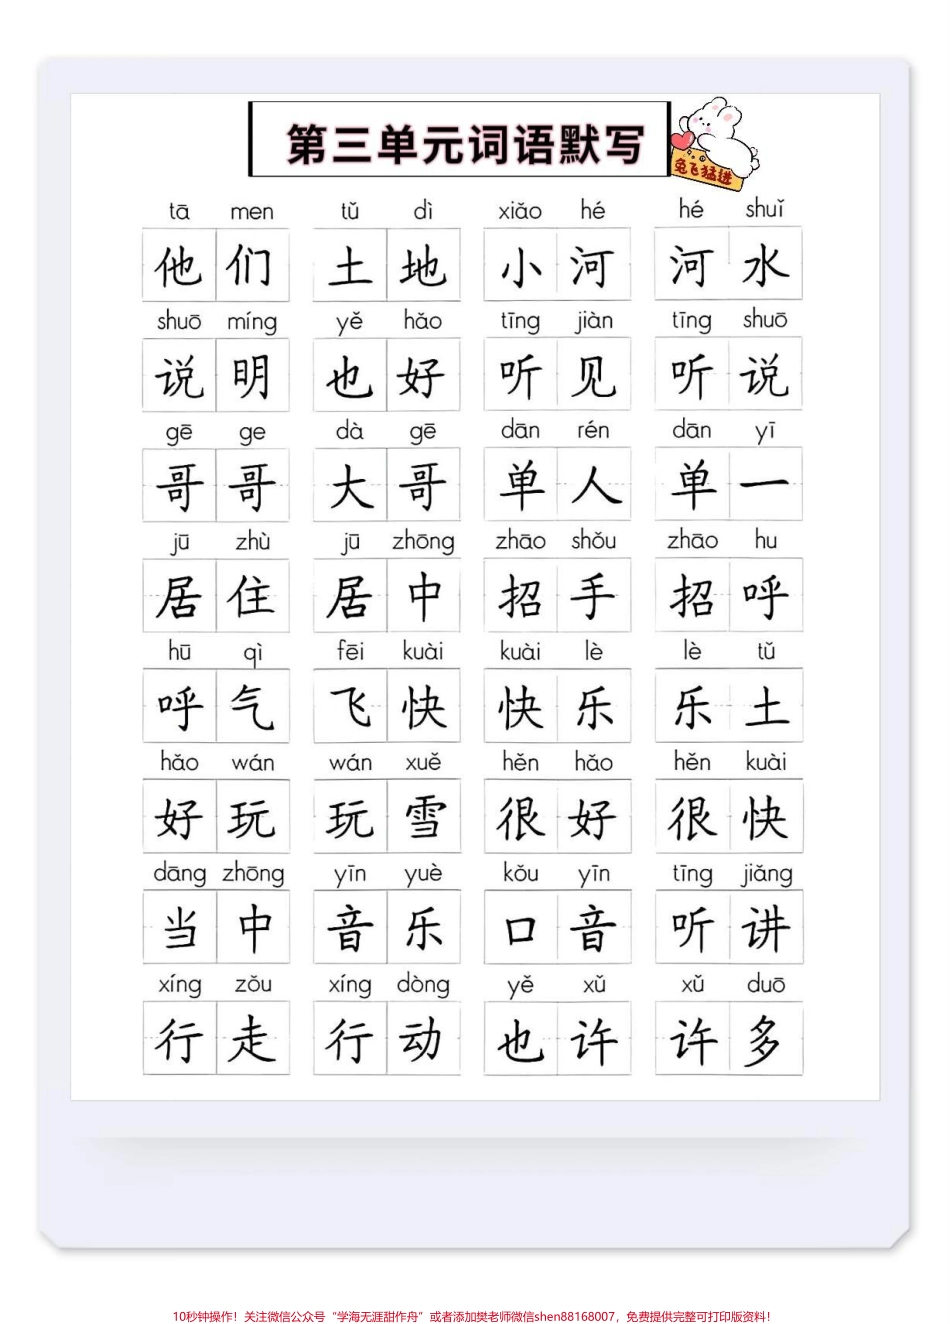 第三单元词语默写
兔飞猛进
tā men tǔ dì xiǎo hé hé shuǐ
他们 土地 小河 河水
shuō míng yě hǎo tīng jiàn tīng shuō
说明 也好 听见 听说
gē ge dà gē dān rén dān yī
哥哥 大哥 单人 单一
jū zhù jū zhōng zhāo shǒu zhāo hu
居住 居中 招手 招呼
hū qì fēi kuài kuài lè lè tǔ
呼气 飞快 快乐 乐土
hǎo wán wán xuě hěn hǎo hěn kuài
好玩 玩雪 很好 很快
dāng zhōng yīn yuè kǒu yīn tīng jiǎng
当中 音乐 口音 听讲
xíng zǒu xíng dòng yě xǔ xǔ duō
行走 行动 也许 许多
10秒钟操作！关注微信公众号“学海无涯甜作舟”或者添加樊老师微信shen88168007，免费提供完整可打印版资料！